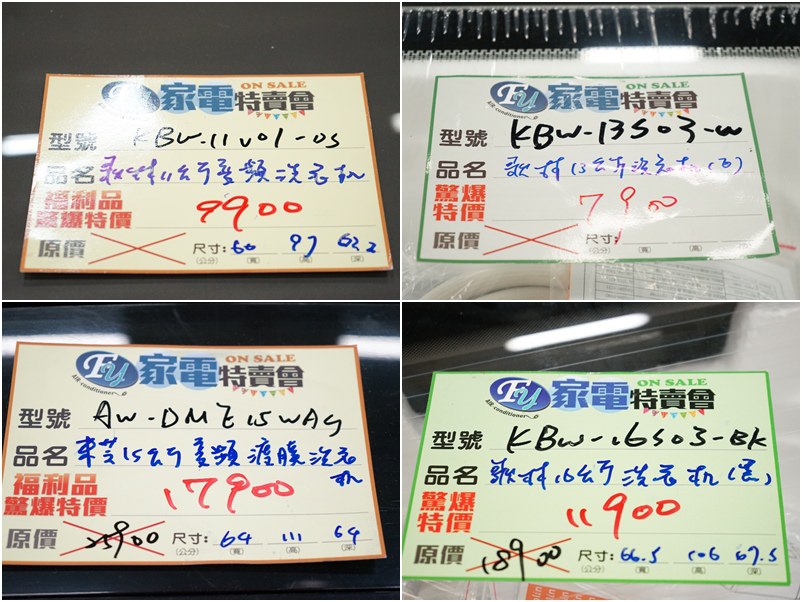 FU 家電特賣會 ON SALE
型號 KBW-11V01-DS
品名 歌林11公斤變頻洗衣机
福利品
驚爆特價 9900
原價 尺寸: 60 97 62.2
(公分) (寬) (高) (深)
FU 家電特賣會 ON SALE
AIR conditioner
型號 KBW-13S03-W
品名 歌林13公斤洗衣机(白)
驚爆
特價 7900
原價 尺寸:
(公分) (寬) (高) (深)
FU 家電特賣會 ON SALE
AIR conditioner
型號 AW-DME15WAG
品名 東芝15公斤變頻渡膜洗衣机
福利品
驚爆特價 17900
原價 25900 尺寸: 64 111 64
(公分) (寬) (高) (深)
FU 家電特賣會 ON SALE
AIR conditioner
型號 KBW-16S03-BK
品名 歌林16公斤洗衣机(黑)
驚爆
特價 11900
原價 18900 尺寸: 66.5 106 67.5
(公分) (寬) (高) (深)